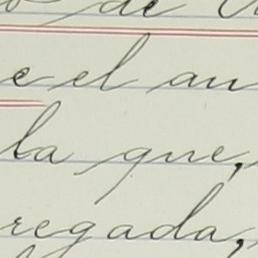 de
e el an
la que,
regada,